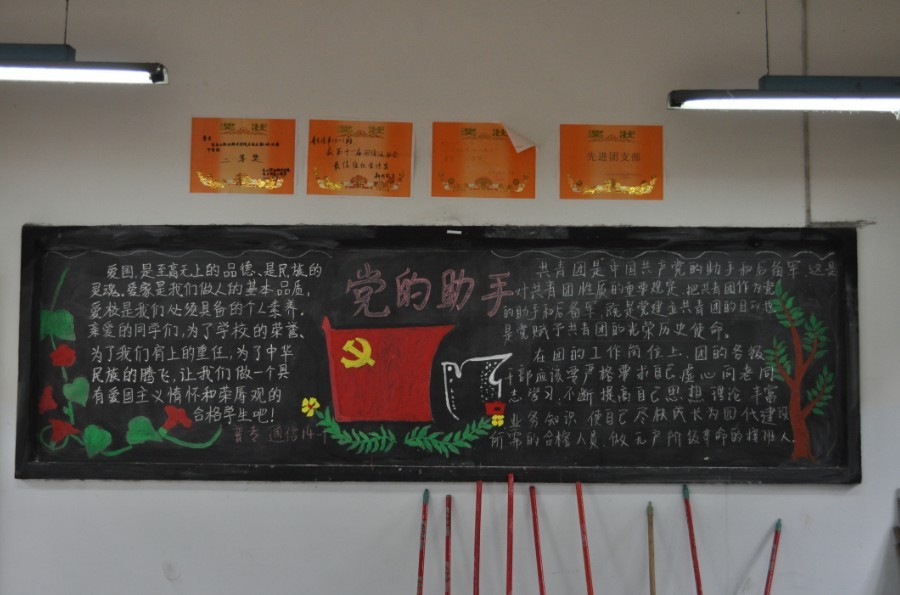 二等奖
先进团支部
党的助手
爱国,是至高无上的品德、是民族的
灵魂。爱家是我们做人的基本品质,
爱校是我们必须具备的个人素养。
亲爱的同学们,为了学校的荣誉、
为了我们肩上的重任,为了中华
民族的腾飞,让我们做一个具
有爱国主义情怀和荣辱观的
合格学生吧!
共青团是中国共产党的助手和后备军 这是
对共青团性质的重要规定。把共青团作为党
的助手和后备军,既是党建立共青团的目的也
是党赋予共青团的光荣历史使命。
在团的工作岗位上,团的各级
干部应该要严格要求自己 虚心向老同
志学习,不断提高自己思想理论 丰富
业务知识 使自己尽快成长为团代建设
所需的合格人员 做无产阶级革命的接班人.